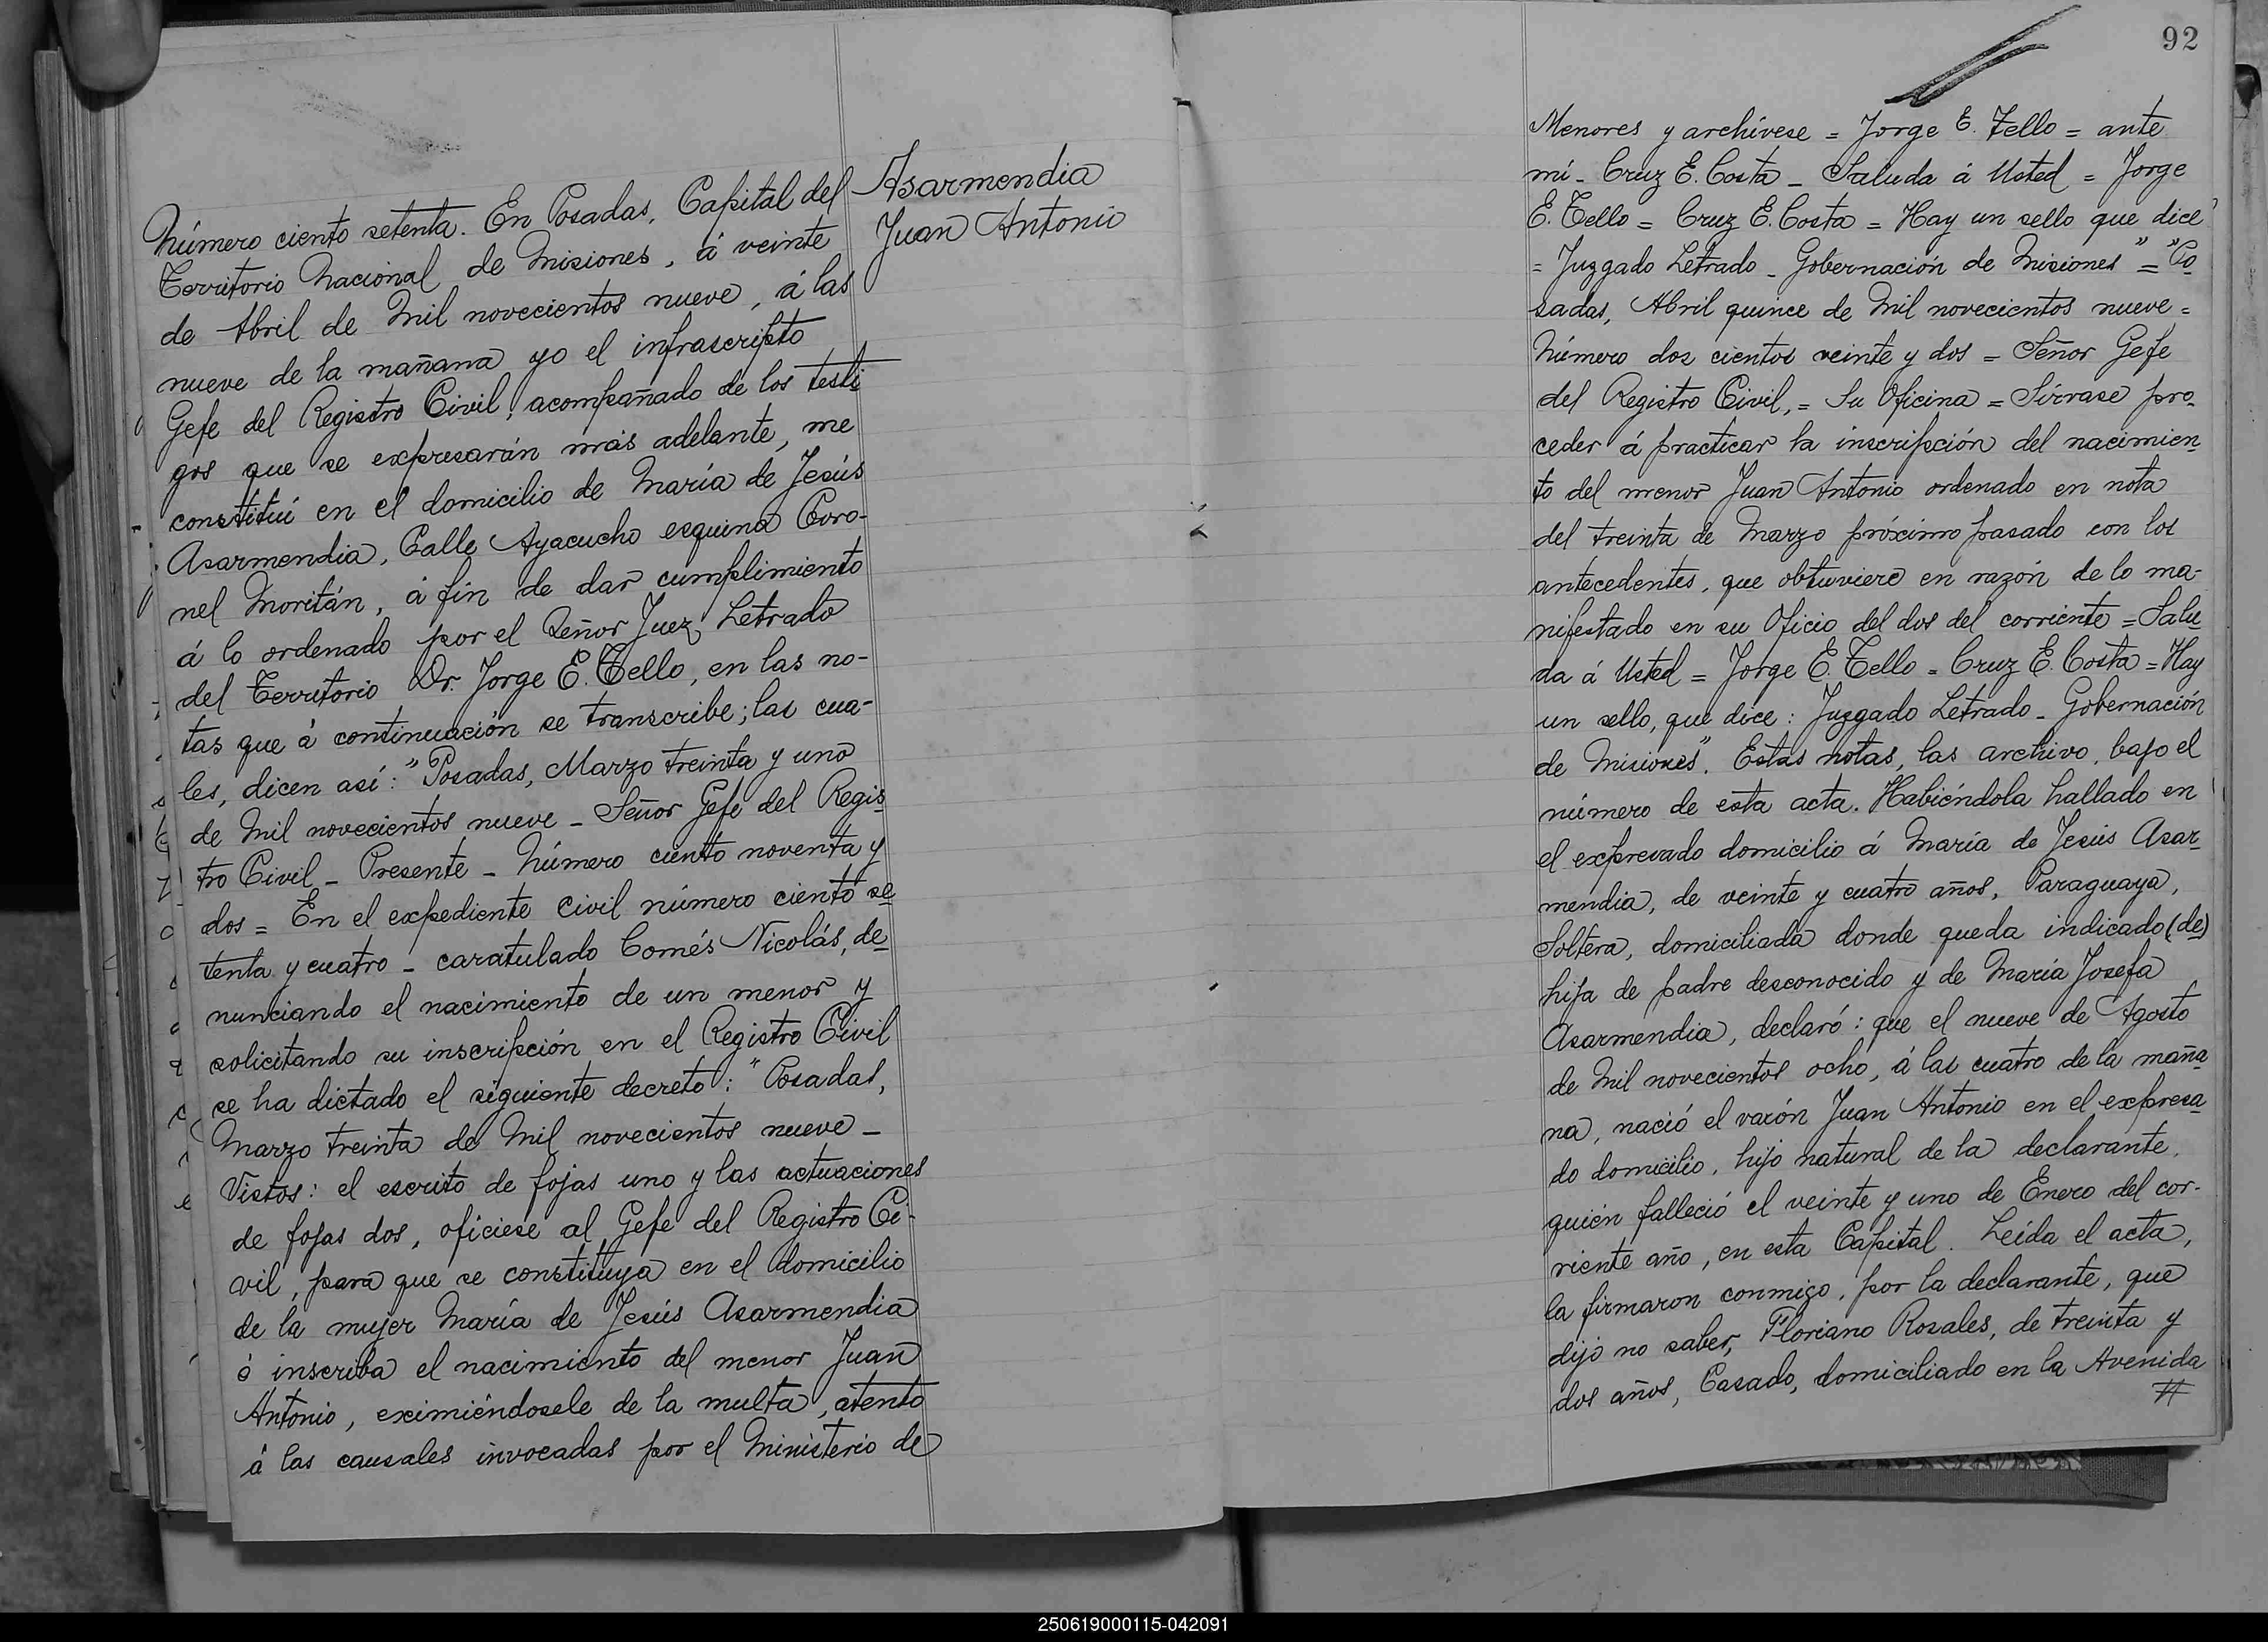 Número ciento setenta. En Posadas, Capital del
Territorio Nacional de Misiones, á veinte
de Abril de Mil novecientos nueve, á las
nueve de la mañana yo el infrascripto
Gefe del Registro Civil, acompañado de los testi
gos que se expresarán más adelante, me
constituí en el domicilio de María de Jesús
Asarmendia, Calle Ayacucho esquina Coro-
nel Moritán, á fin de dar cumplimiento
á lo ordenado por el Señor Juez Letrado
del Territorio Dr. Jorge E. Tello, en las no-
tas que á continuación se transcribe; las cua-
les, dicen así: "Posadas, Marzo treinta y uno
de Mil novecientos nueve - Señor Gefe del Regis
tro Civil - Presente - Número ciento noventa y
dos = En el expediente civil número ciento se
tenta y cuatro - caratulado Comés Nicolás, de
nunciando el nacimiento de un menor y
solicitando su inscripción en el Registro Civil
se ha dictado el siguiente decreto: "Posadas,
Marzo treinta de Mil novecientos nueve -
Vistos: el escrito de fojas uno y las actuaciones
de fojas dos, ofíciese al Gefe del Registro Ci-
vil, para que se constituya en el domicilio
de la mujer María de Jesús Asarmendia
é inscriba el nacimiento del menor Juan
Antonio, eximiéndosele de la multa, atento
á las causales invocadas por el Ministerio de
Asarmendia
Juan Antonio
92
Menores y archívese = Jorge E. Tello = ante
mí - Cruz E. Costa - Saluda á Usted = Jorge
E. Tello = Cruz E. Costa = Hay un sello que dice
= Juzgado Letrado - Gobernación de Misiones" = "Po
sadas, Abril quince de Mil novecientos nueve =
Número dos cientos veinte y dos = Señor Gefe
del Registro Civil, = Su Oficina = Sírvase pro-
ceder á practicar la inscripción del nacimien
to del menor Juan Antonio ordenado en nota
del treinta de Marzo próximo pasado con los
antecedentes, que obtuviere en razón de lo ma-
nifestado en su Oficio del dos del corriente = Salu
da á Usted = Jorge E. Tello = Cruz E. Costa = Hay
un sello, que dice: Juzgado Letrado - Gobernación
de Misiones". Estas notas, las archivo, bajo el
número de esta acta. Habiéndola hallado en
el expresado domicilio á María de Jesús Asar
mendia, de veinte y cuatro años, Paraguaya,
Soltera, domiciliada donde queda indicado (de)
hija de padre desconocido y de María Josefa
Asarmendia, declaró: que el nueve de Agosto
de Mil novecientos ocho, á las cuatro de la maña
na, nació el varón Juan Antonio en el expresa
do domicilio, hijo natural de la declarante,
quién falleció el veinte y uno de Enero del cor-
riente año, en esta Capital. Leída el acta,
la firmaron conmigo, por la declarante, que
dijo no saber, Floriano Rosales, de treinta y
dos años, Casado, domiciliado en la Avenida
#
250619000115-042091